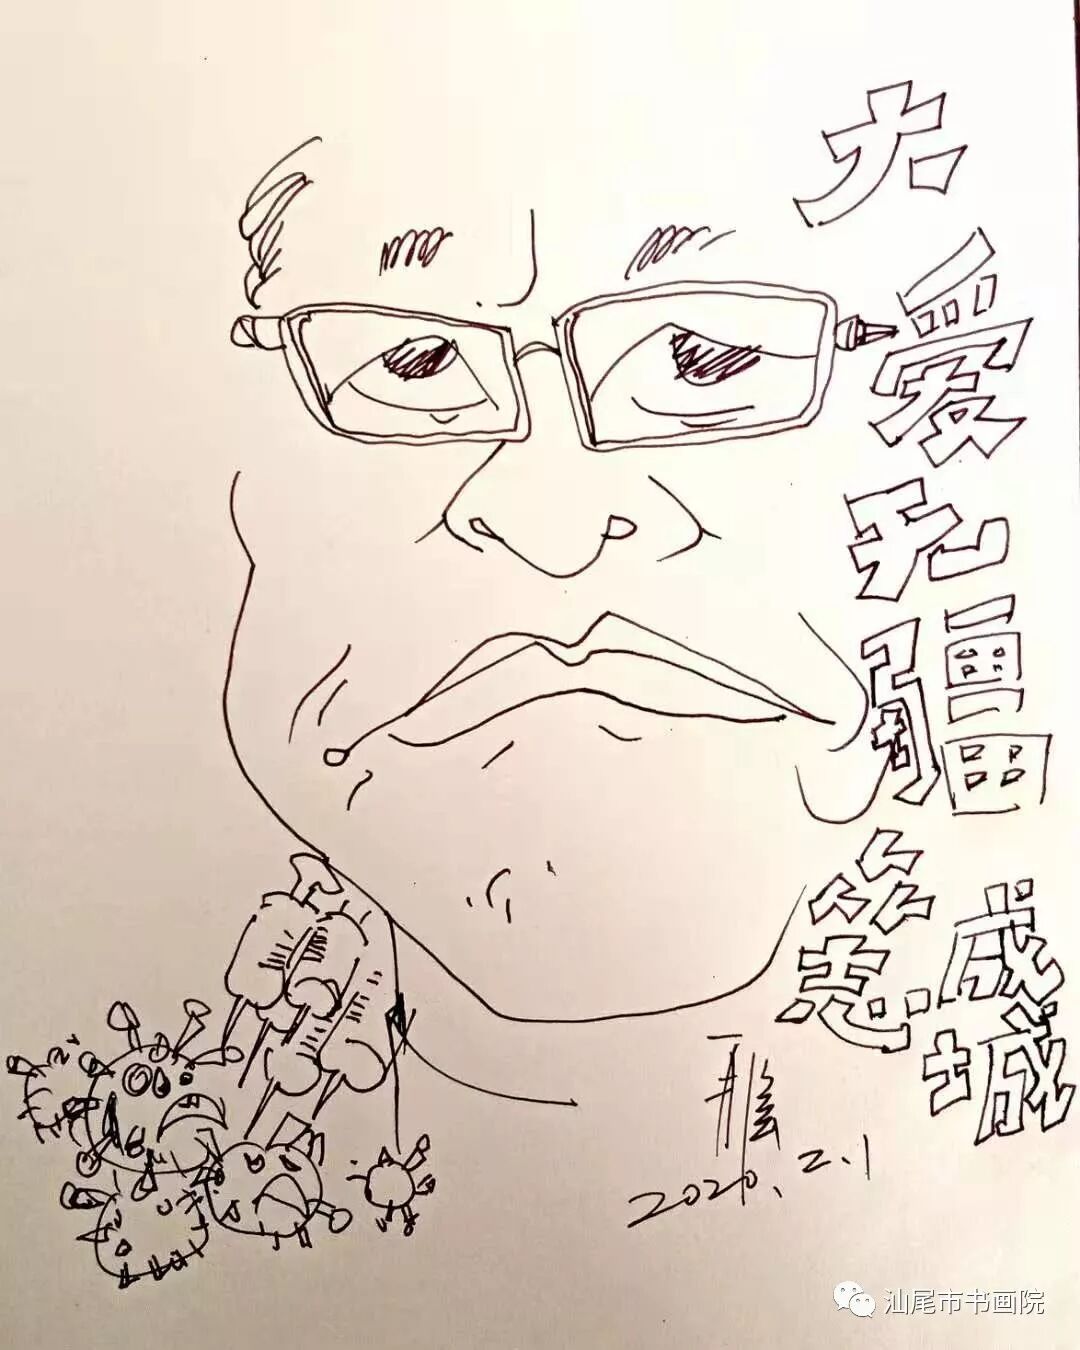 大爱无疆
众志
成城
2020.2.1
汕尾市书画院